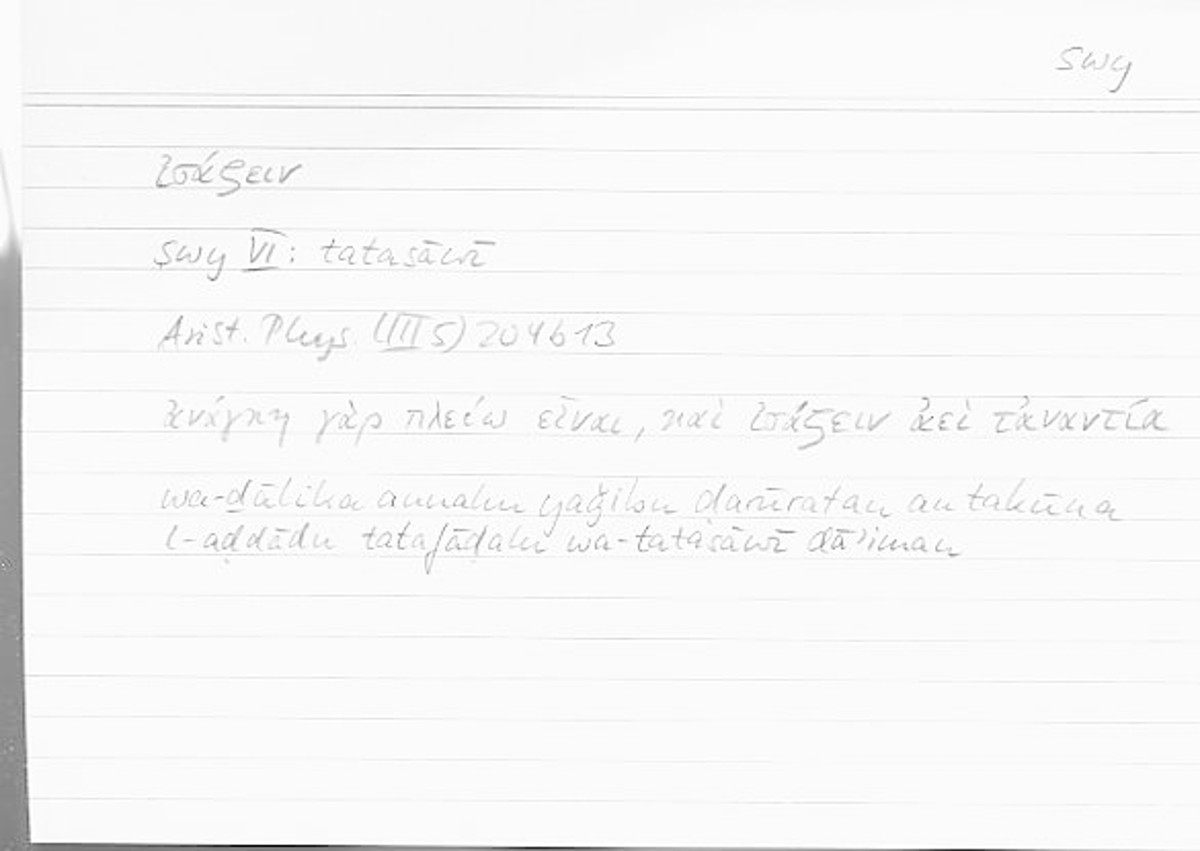 swy
ἰσάζειν
swy VI: tatasāwā
Arist. Phys. (III 5) 204b13
ἀνάγκη γὰρ πλείω εἶναι, καὶ ἰσάζειν ἀεὶ τἀναντία
wa-ḏālika annahu yaǧibu ḍarūratan an takūna
l-aḍdādu tatafāḍalu wa-tatasāwā dāʾiman